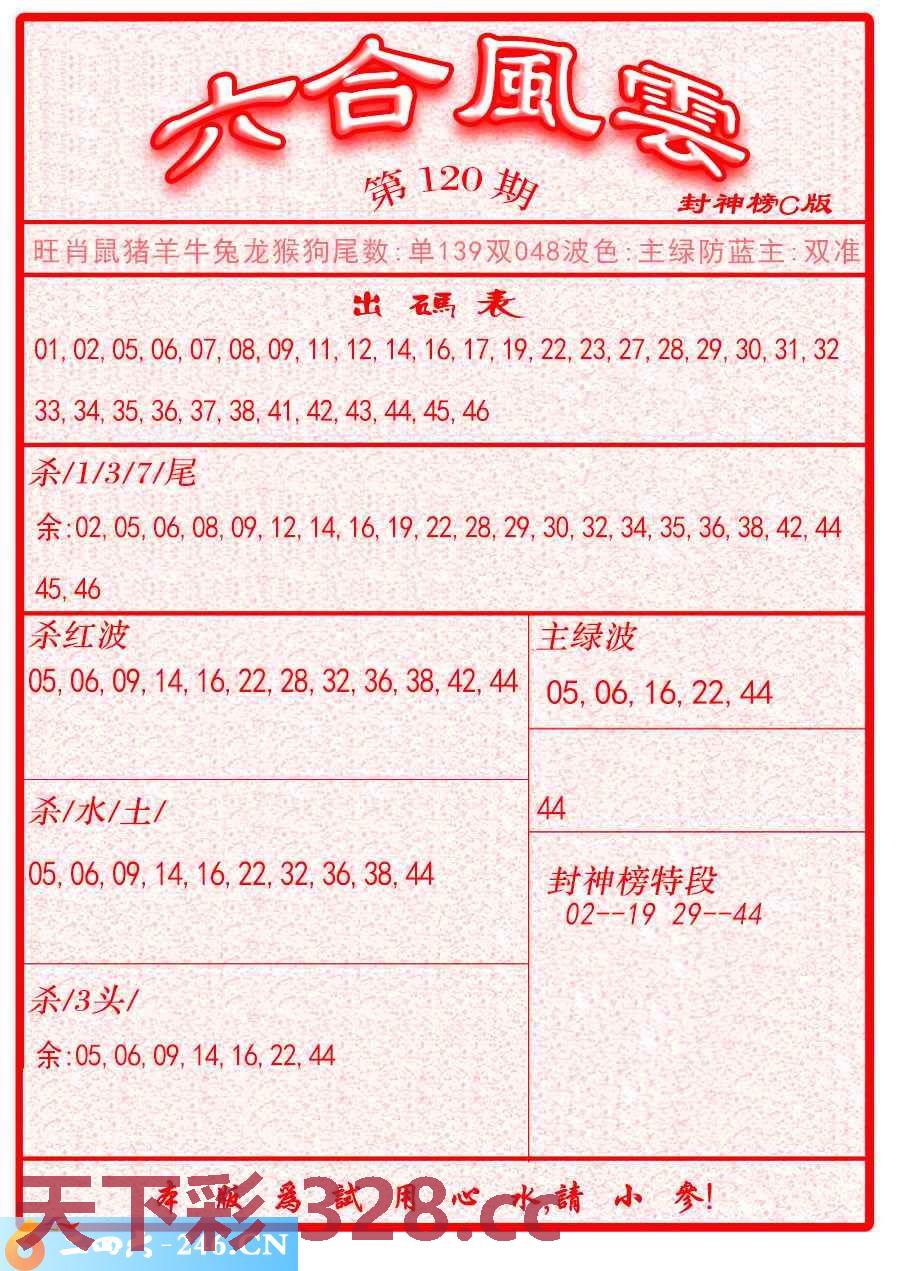 六合風雲
第120期
封神榜C版
旺肖鼠猪羊牛兔龙猴狗尾数:单139双048波色:主绿防蓝主:双准
出碼表
01,02,05,06,07,08,09,11,12,14,16,17,19,22,23,27,28,29,30,31,32
33,34,35,36,37,38,41,42,43,44,45,46
杀/1/3/7/尾
余:02,05,06,08,09,12,14,16,19,22,28,29,30,32,34,35,36,38,42,44
45,46
杀红波
05,06,09,14,16,22,28,32,36,38,42,44
主绿波
05,06,16,22,44
44
杀/水/土/
05,06,09,14,16,22,32,36,38,44
封神榜特段
02--19 29--44
杀/3头/
余:05,06,09,14,16,22,44
本版為試用心水,請小參!
天下彩328.cc
-246.CN